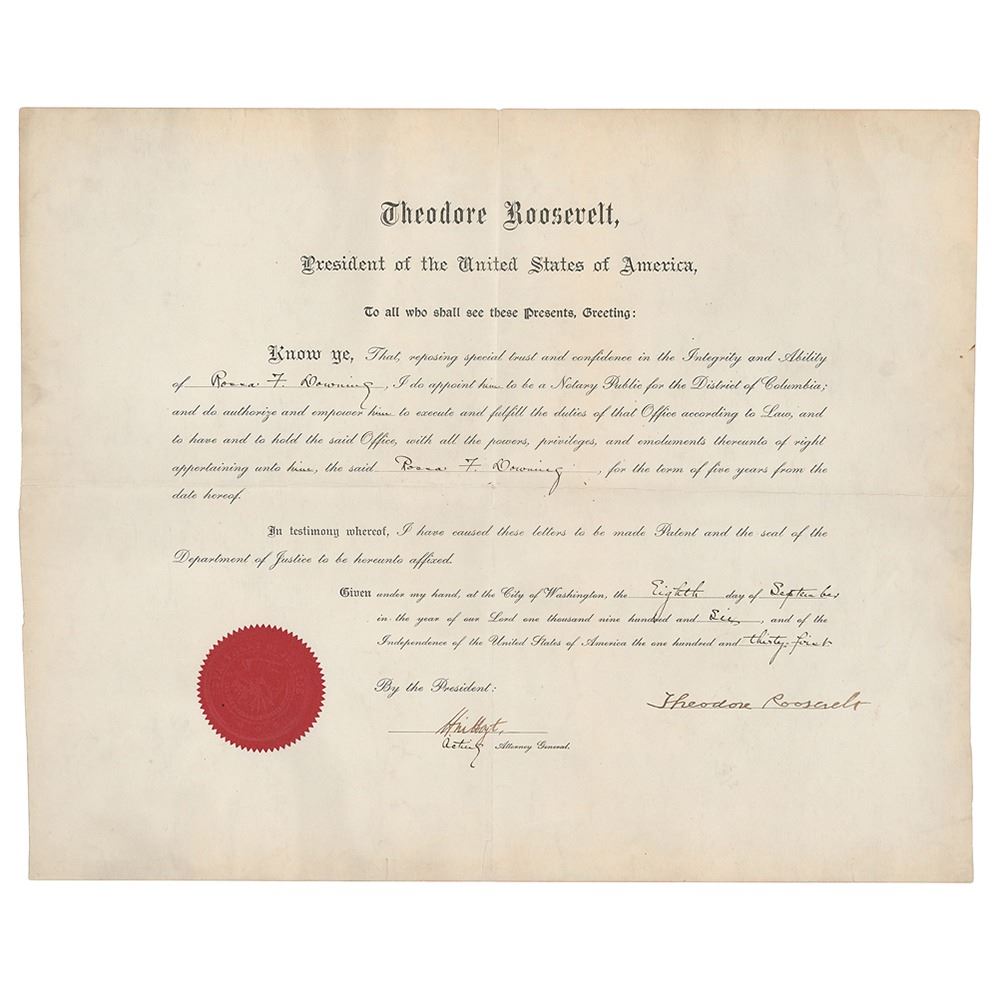 Theodore Roosevelt,
President of the United States of America,
To all who shall see these Presents, Greeting:
Know ye, That, reposing special trust and confidence in the Integrity and Ability
of Rossa F. Downing, I do appoint him to be a Notary Public for the District of Columbia;
and do authorize and empower him to execute and fulfill the duties of that Office according to Law, and
to have and to hold the said Office, with all the powers, privileges, and emoluments thereunto of right
appertaining unto him, the said Rossa F. Downing, for the term of five years from the
date hereof.
In testimony whereof, I have caused these letters to be made Patent and the seal of the
Department of Justice to be hereunto affixed.
Given under my hand, at the City of Washington, the Eighth day of September
in the year of our Lord one thousand nine hundred and Six, and of the
Independence of the United States of America the one hundred and thirty-first.
By the President:
Theodore Roosevelt
Hoyt,
Acting Attorney General.